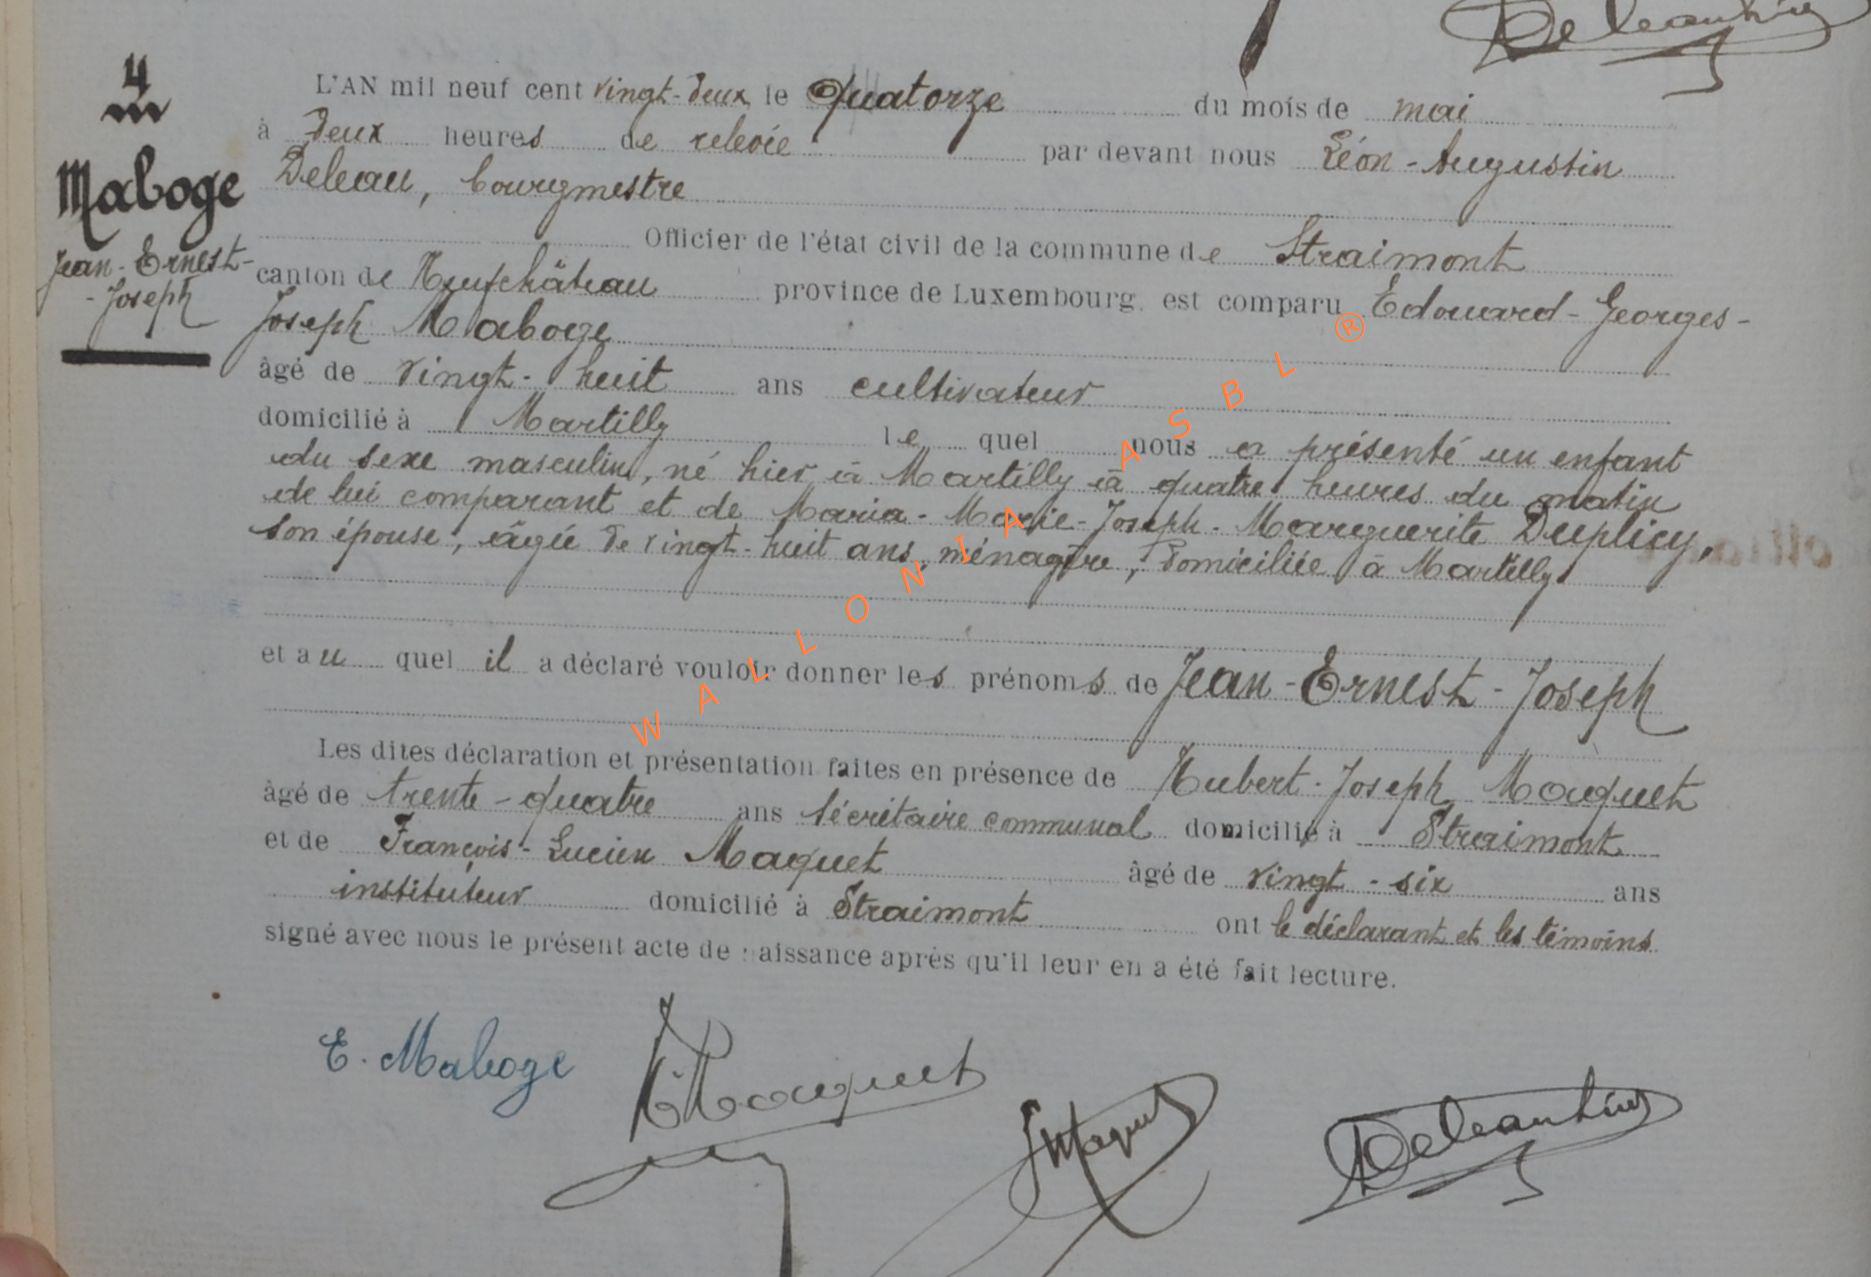 4
Maboge
Jean-Ernest-
-Joseph
L'AN mil neuf cent vingt-deux, le Quatorze du mois de mai
à Deux heures de relevée par devant nous Léon-Augustin
Deleau, bourgmestre
Officier de l'état civil de la commune de Straimont
canton de Neufchâteau province de Luxembourg. est comparu Edouard-Georges-
Joseph Maboge
âgé de vingt-huit ans cultivateur
domicilié à Martilly le quel nous a présenté un enfant
du sexe masculin, né hier, à Martilly à quatre heures du matin
de lui comparant et de Maria-Marie-Joseph-Marguerite Duplicy,
son épouse, âgée de vingt-huit ans, ménagère, domiciliée à Martilly
et au quel il a déclaré vouloir donner les prénoms de Jean-Ernest-Joseph
Les dites déclaration et présentation faites en présence de Hubert-Joseph Maquet
âgé de trente-quatre ans secrétaire communal domicilié à Straimont
et de François-Lucien Maquet âgé de vingt-six ans
instituteur domicilié à Straimont ont le déclarant et les témoins
signé avec nous le présent acte de naissance après qu'il leur en a été fait lecture.
E. Maboge
Maquet
Maquet
WALLONIA ASBL ®